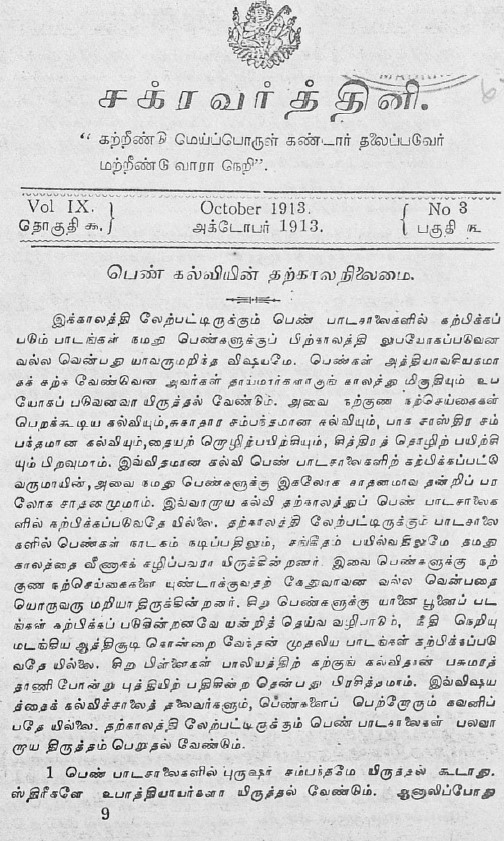 சக்ரவர்த்தினி.
“ கற்றீண்டு மெய்ப்பொருள் கண்டார் தலைப்படுவேர்
மற்றீண்டு வாரா நெறி”.
Vol IX. October 1913. No 3
தொகுதி ௯. அக்டோபர் 1913. பகுதி ௩
பெண் கல்வியின் தற்காலநிலைமை.
இக்காலத்தி லேற்பட்டிருக்கும் பெண் பாடசாலைகளில் கற்பிக்கப்
படும் பாடங்கள் நமது பெண்களுக்குப் பிற்காலத்தி லுபயோகப்படுவன
வல்ல வென்பது யாவருமறிந்த விஷயமே. பெண்கள் அத்தியாவசியகமா
கக் கற்க வேண்டுவன அவர்கள் தாய்மார்களாகுங் காலத்து மிகுதியும் உப
யோகப் படுவனவா யிருத்தல் வேண்டும். அவை நற்குண நற்செய்கைகள்
பெறக்கூடிய கல்வியும்,சுகாதார சம்பந்தமான கல்வியும், பாக சாஸ்திர சம்
பந்தமான கல்வியும்,தையற் றொழிற்பயிற்சியும், சித்திரத் தொழிற் பயிற்சி
யும் பிறவுமாம். இவ்விதமான கல்வி பெண் பாடசாலைகளிற் கற்பிக்கப்பட்டு
வருமாயின்,அவை நமது பெண்களுக்கு இகலோக சாதனமாவ தன்றிப் பர
லோக சாதனமுமாம். இவ்வாறாய கல்வி தற்காலத்துப் பெண் பாடசாலைக
ளில் கற்பிக்கப்படுவதே யில்லை. தற்காலத்தி லேற்பட்டிருக்கும் பாடசாலை
களில் பெண்கள் நாடகம் நடிப்பதிலும், சங்கீதம் பயில்வதிலுமே தமது
காலத்தை வீணாகக் கழிப்பவரா யிருக்கின்றனர். இவை பெண்களுக்கு நற்
குண நற்செய்கைகளை யுண்டாக்குவதற் கேதுவாவன வல்ல வென்பதை
யொருவரு மறியாதிருக்கின்றனர். சிறு பெண்களுக்கு யானை பூனைப் பட
ங்கள் கற்பிக்கப் படுகின்றனவே யன்றித் தெய்வ வழிபாடும், நீதி நெறியு
மடங்கிய ஆத்திசூடி கொன்றை வேந்தன் முதலிய பாடங்கள் கற்பிக்கப்படு
வதே யில்லை. சிறு பிள்ளைகள் பாலியத்திற் கற்குங் கல்விதான் பசுமரத்
தாணி போன்று புத்தியிற் பதிகின்ற தென்பது பிரசித்தமாம். இவ்விஷய
த்தைக் கல்விச்சாலைத் தலைவர்களும், பெண்களைப் பெற்றோரும் கவனிப்
பதே யில்லை. தற்காலத்தி லேற்பட்டிருக்கும் பெண் பாடசாலைகள் பலவா
றாய திருத்தம் பெறுதல் வேண்டும்.
1 பெண் பாடசாலைகளில் புருஷர் சம்பந்தமே யிருத்தல் கூடாது.
ஸ்திரீகளே உபாத்தியாயர்களா யிருத்தல் வேண்டும். ஆனாலிப்போது
9